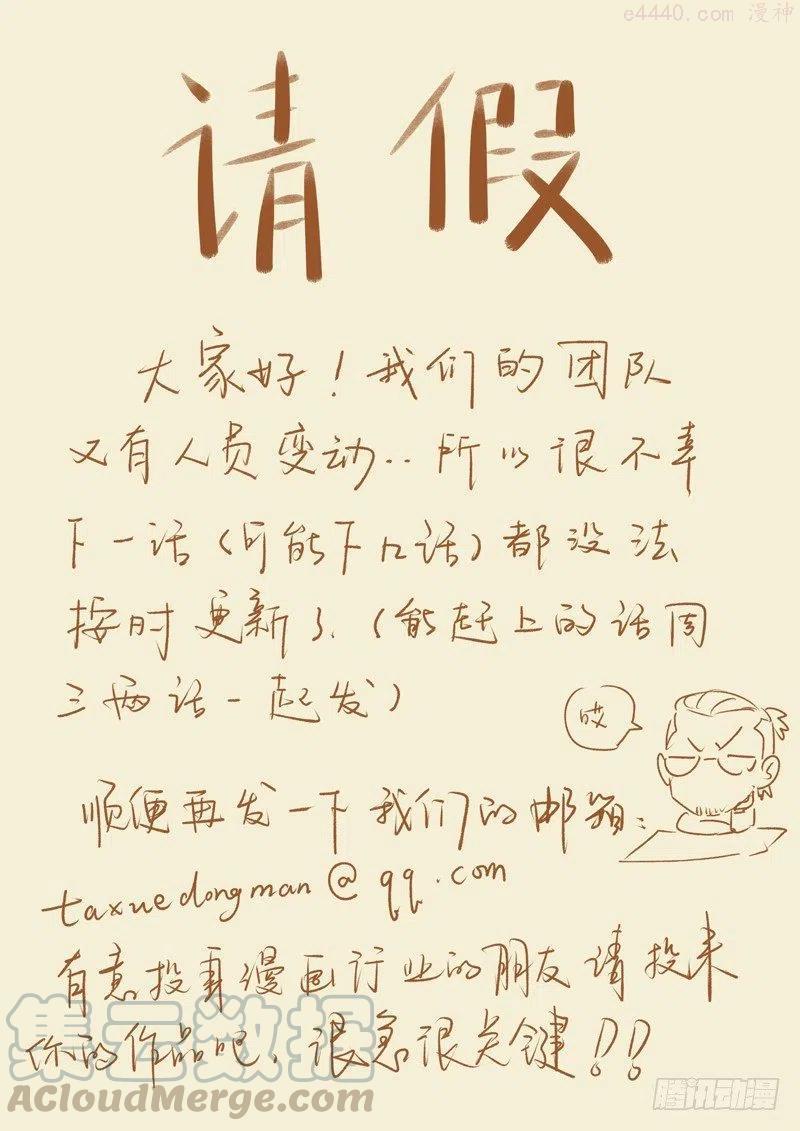 e4440.com 漫神
请假
大家好！我们的团队
又有人员变动..所以很不幸
下一话(可能下几话)都没法
按时更新了.(能赶上的话周
三两话一起发)
哎
顺便再发一下我们的邮箱:
taxuedongman@qq.com
有意投身漫画行业的朋友请投来
你的作品吧、很急很关键!!
集云数据
ACloudMerge.com
腾讯动漫